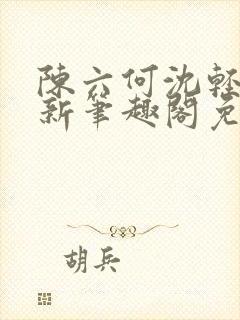 陳六何沈輕
新筆趣閣免
胡兵